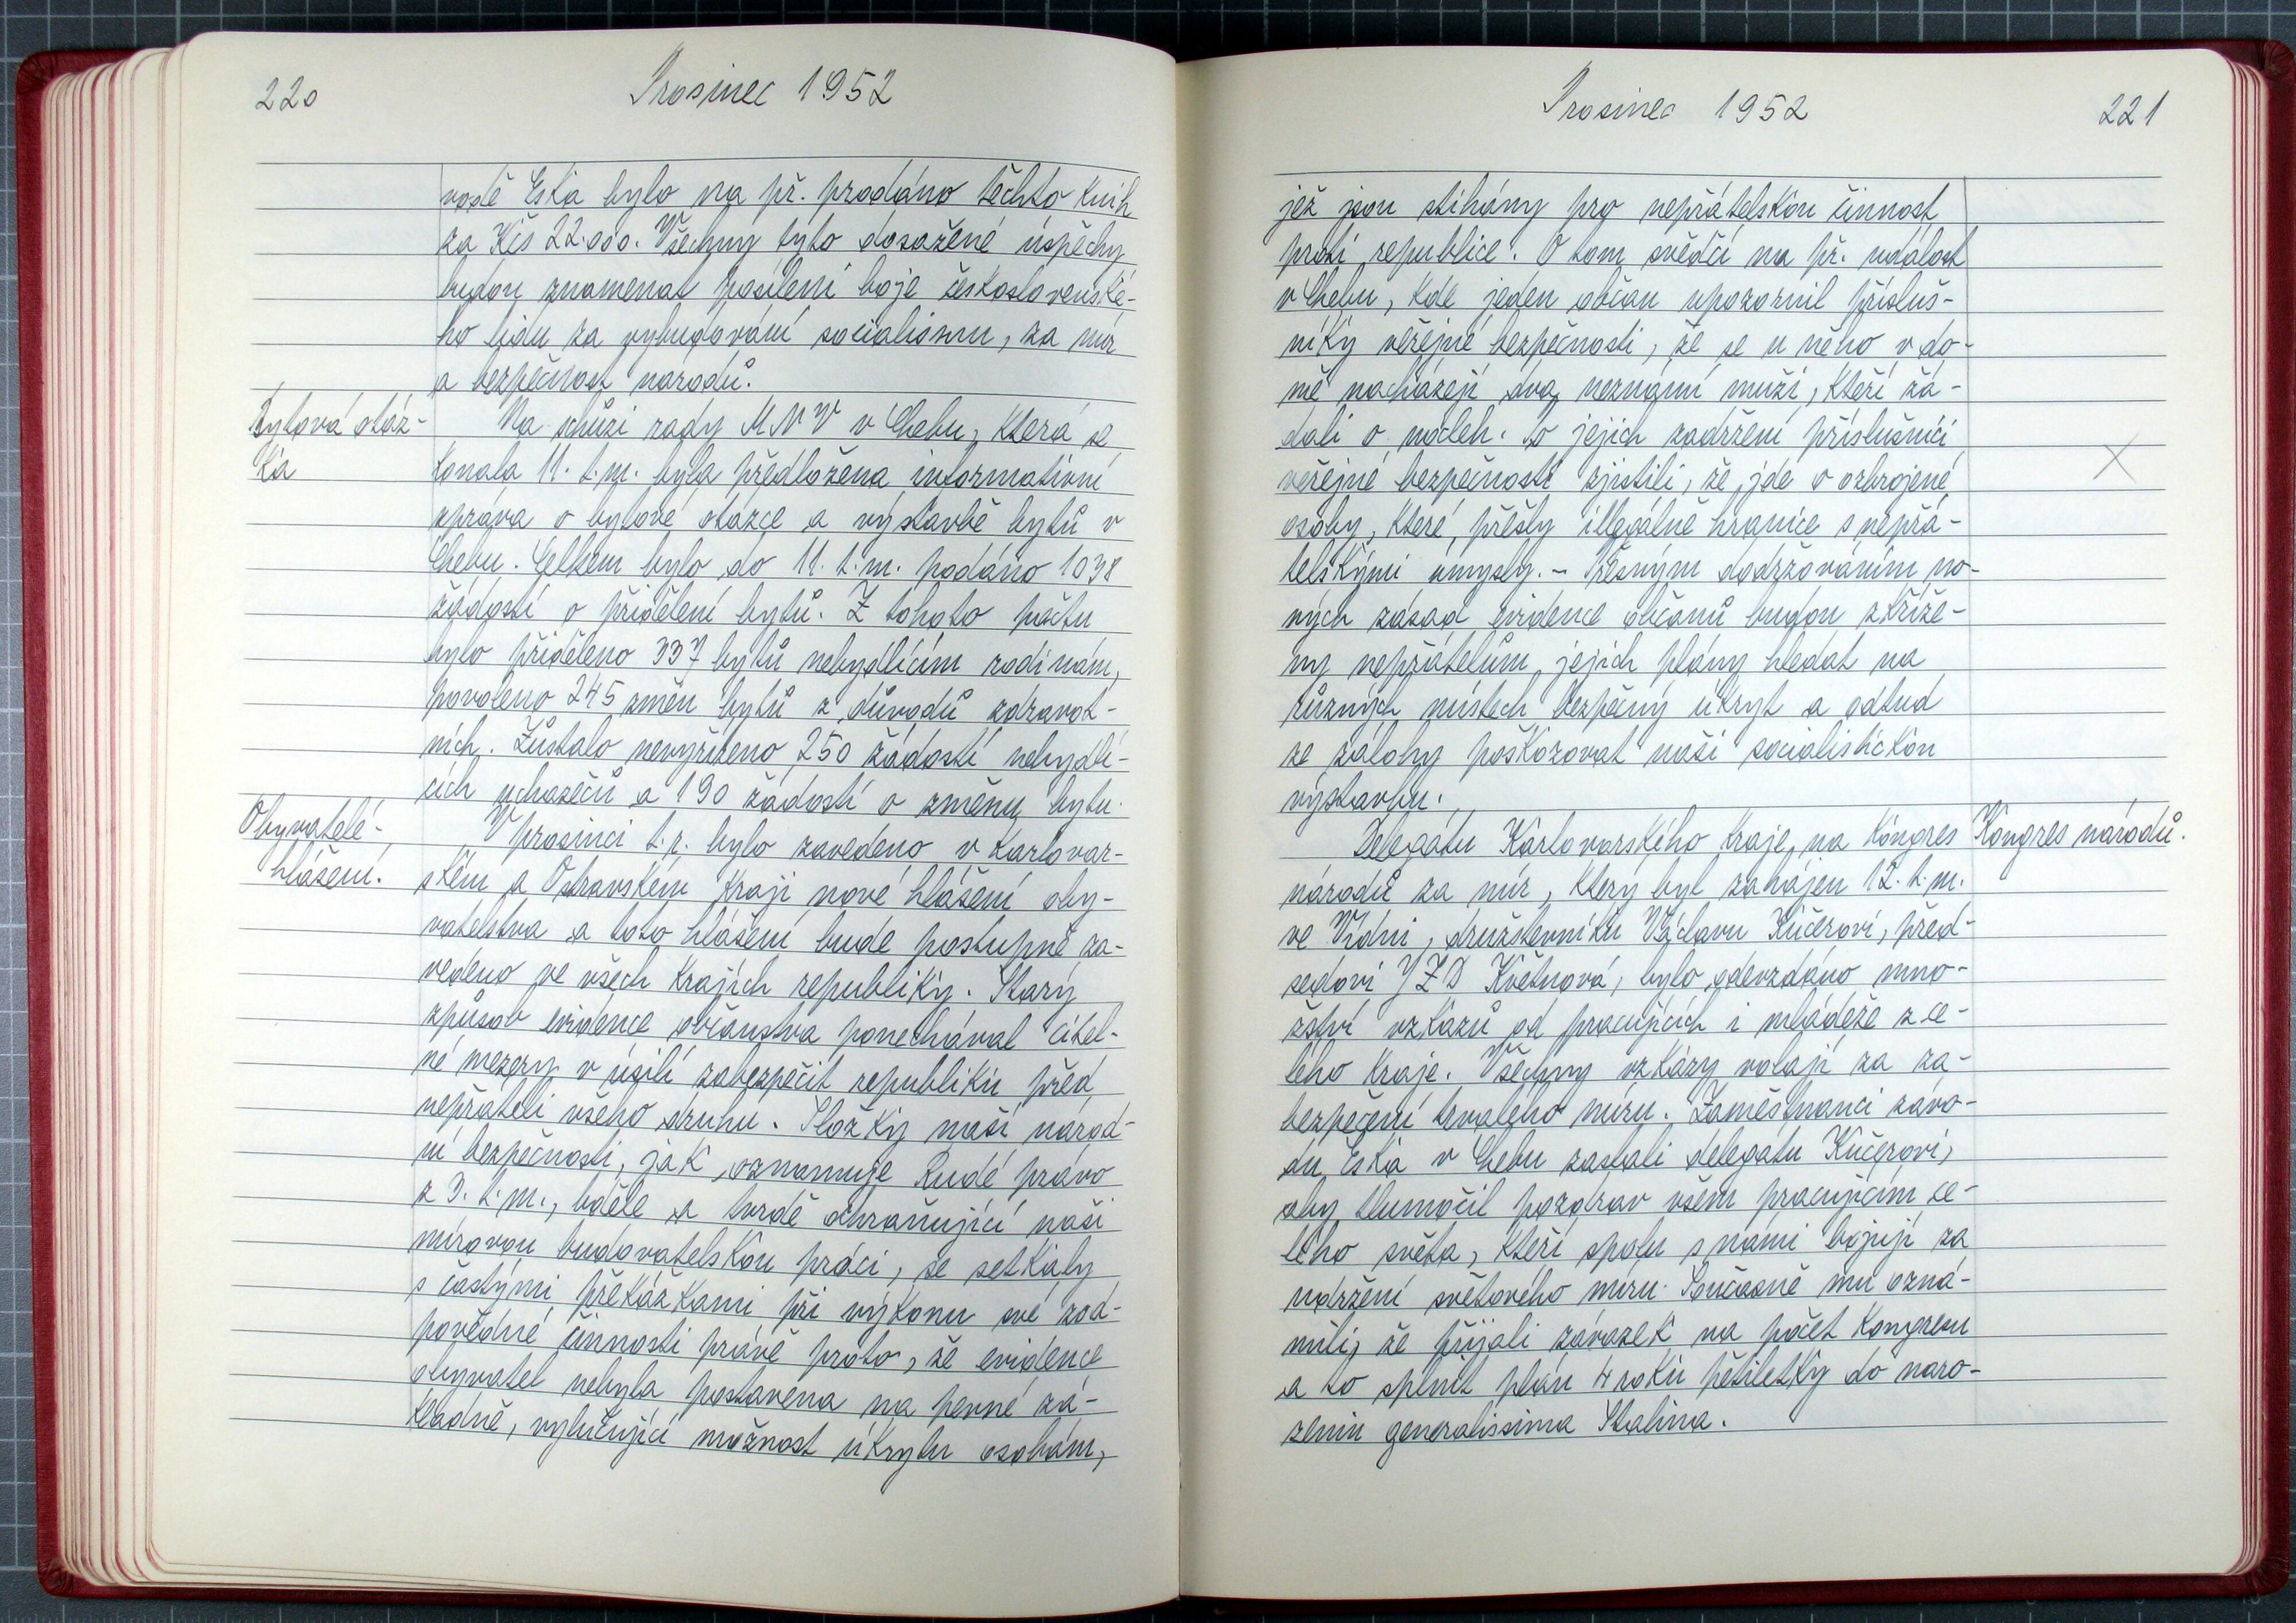 220
Prosinec 1952
vodě Eska bylo na př. prodáno těchto knih
za Kčs 22.000. Všechny tyto dosažené úspěchy
budou znamenat posílení boje československé-
ho lidu za vybudování socialismu, za mír
a bezpečnost národů.
Bytová otáz-
ka
Na schůzi rady MNV v Chebu, která se
konala 11. t.m. byla předložena informativní
zpráva o bytové otázce a výstavbě bytů v
Chebu. Celkem bylo do 11. t.m. podáno 1038
žádostí o přidělení bytů. Z tohoto počtu
bylo přiděleno 337 bytů nebydlícím rodinám,
povoleno 245 změn bytů z důvodů zdravot-
ních. Zůstalo nevyřízeno 250 žádostí nebydlí-
cích uchazečů a 190 žádostí o změnu bytu.
Obyvatelé-
hlášení.
V prosinci t.r. bylo zavedeno v Karlovar-
ském a Ostravském kraji nové hlášení oby-
vatelstva a toto hlášení bude postupně za-
vedeno ve všech krajích republiky. Starý
způsob evidence občanstva ponechával citel-
né mezery v úsilí zabezpečit republiku před
nepřáteli všeho druhu. Složky naší národ-
ní bezpečnosti, jak oznamuje Rudé právo
z 3. t.m., bděle a tvrdě ochraňující naši
mírovou budovatelskou práci, se setkaly
s častými překážkami při výkonu své zod-
povědné činnosti právě proto, že evidence
obyvatel nebyla postavena na pevné zá-
kladně, vylučující možnost úkrytu osobám,
Prosinec 1952
221
jež jsou stíhány pro nepřátelskou činnost
proti republice. O tom svědčí na př. událost
v Chebu, kde jeden občan upozornil přísluš-
níky veřejné bezpečnosti, že se u něho v do-
mě nacházejí dva neznámí muži, kteří žá-
dali o nocleh. Po jejich zadržení příslušníci
veřejné bezpečnosti zjistili, že jde o ozbrojené
osoby, které přešly illegálně hranice s nepřá-
telskými úmysly. - Přesným dodržováním no-
vých zásad evidence občanů budou zkříže-
ny nepřátelům jejich plány hledat na
různých místech bezpečný úkryt a odtud
ze zálohy poškozovat naši socialistickou
výstavbu.
Kongres národů.
Delegátu Karlovarského kraje na Kongres
národů za mír, který byl zahájen 12. t.m.
ve Vídni, družstevníku Václavu Kučerovi, před-
sedovi JZD Květnová, bylo odevzdáno mno-
žství vzkazů od pracujících i mládeže z ce-
lého kraje. Všechny vzkazy volají za za-
bezpečení trvalého míru. Zaměstnanci závo-
du Eska v Chebu zaslali delegátu Kučerovi,
aby tlumočil pozdrav všem pracujícím ce-
lého světa, kteří spolu s námi bojují za
udržení světového míru. Současně mu ozná-
mili, že přijali závazek na počet Kongresu
a to splnit plán 4 roku pětiletky do naro-
zenin generalissima Stalina.